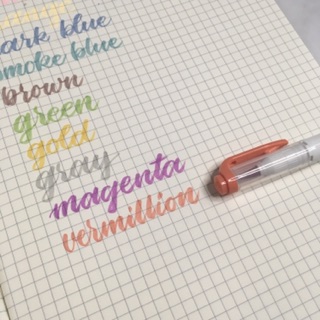 dark blue
smoke blue
brown
green
gold
gray
magenta
vermillion